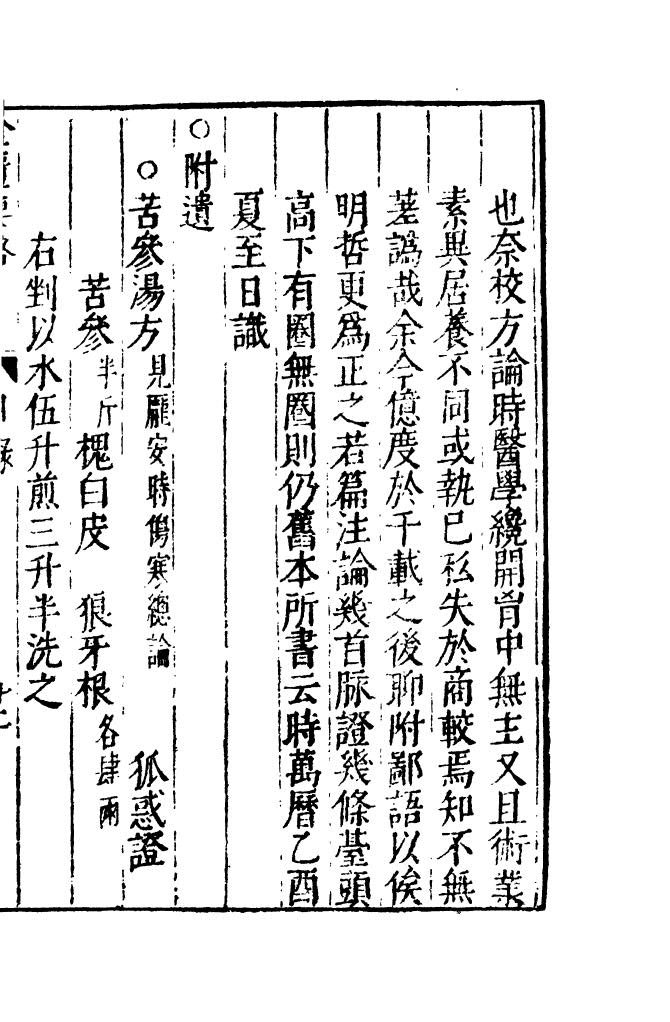 也奈校方論時醫學纔開胷中無主又且術業
素異居養不同或執已私失於商較焉知不無
差譌哉余今億度於千載之後聊附鄙語以俟
明哲更爲正之若篇注論幾首脉證幾條臺頭
高下有圈無圈則仍舊本所書云時萬曆乙酉
夏至日識
○附遺
○苦參湯方見龐安時傷寒總論 狐惑證
苦參半斤槐白皮 狼牙根各肆兩
右剉以水伍升煎三升半洗之